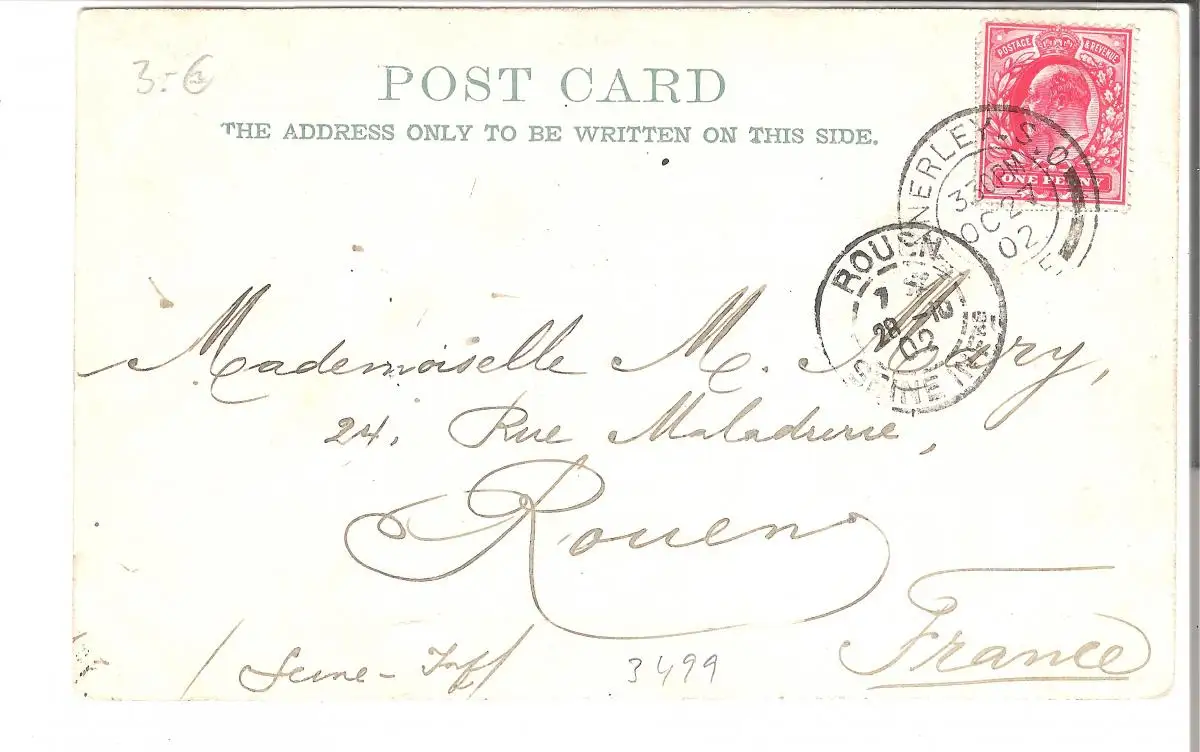 3-6
POST CARD
THE ADDRESS ONLY TO BE WRITTEN ON THIS SIDE.
POSTAGE & REVENUE
ONE PENNY
NERLEY S.O
3 30PM
OC 27
02
ROUEN
28 -10
02
SEINE INFRE
Mademoiselle M.
24, Rue Maladrerie,
Rouen
France
(Seine-Inf)
3499